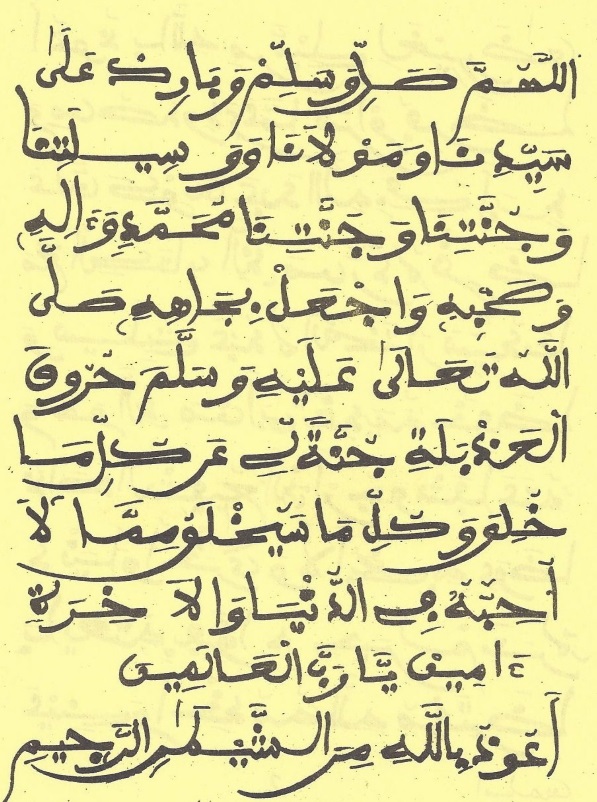 اللَّهُمَّ صَلِّ وَسَلِّمْ وَبَارِكْ عَلَىٰ
سَيِّدِنَا وَمَوْلَانَا وَوَسِيلَتِنَا
وَجُنَّتِنَا وَجَنَّتِنَا مُحَمَّدٍ وَءَالِهِ
وَصَحْبِهِ وَاجْعَلْ بِجَاهِهِ صَلَّى
اللَّهُ تَعَالَىٰ عَلَيْهِ وَسَلَّمَ حُرُوفَ
الْحَوْبَلَةِ جُنَّةً لِي عَن كُلِّ مَا
خُلِقَ وَكُلِّ مَا سَيُخْلَقُ مِمَّا لَا
أُحِبُّهُ فِي الدُّنْيَا وَالَاخِرَةِ
ءَامِينَ يَا رَبَّ الْعَالَمِينَ
أَعُوذُ بِاللَّهِ مِنَ الشَّيْطَٰنِ الرَّجِيمِ